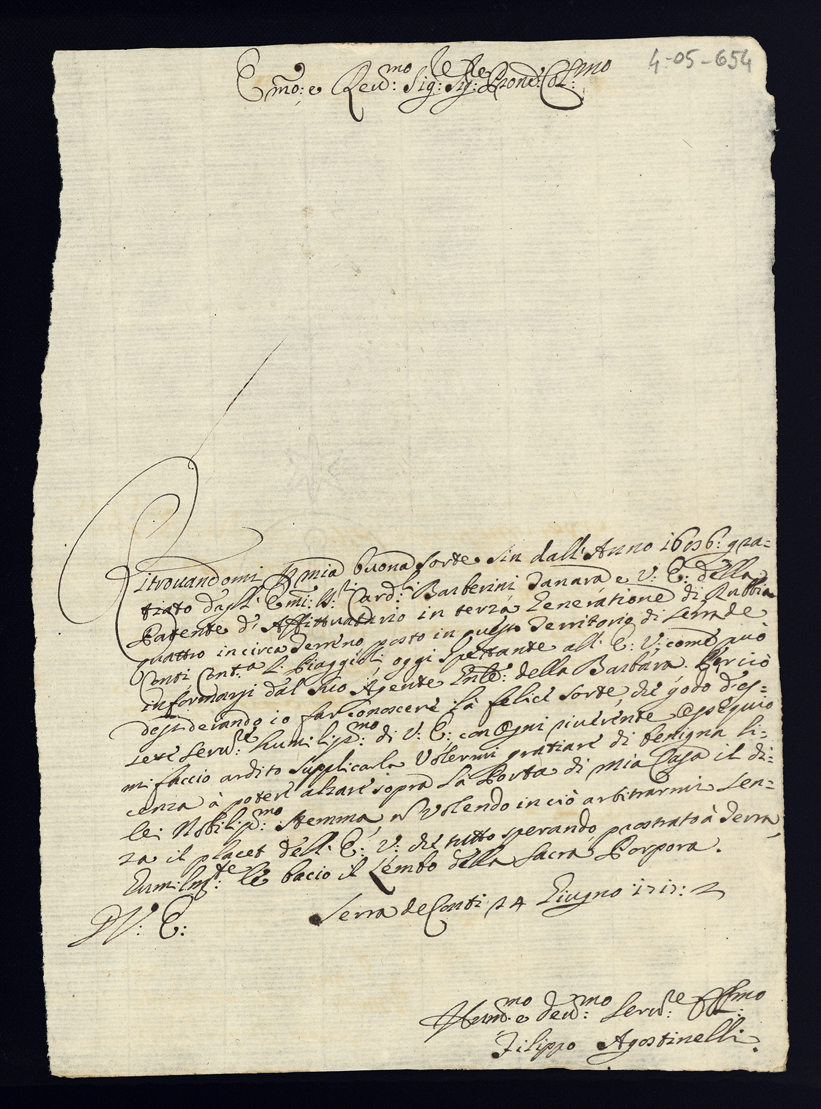 4-05-654
Emo: e Reud:mo Sig:re Sig:re Prone: Col:mo
Ritrouandomi p mia buona sorte sin dall'Anno 1696: gra-
tiato dagl'Emi: SS:ri Card:li Barberini Tanara, e V: E: della
Patente di Affittuatario in terza generatione di Rubbia
quattro in circa Terreno posto in questo Territorio di Serra de
Conti Cont:a li Biaggioli oggi spettante all'E: V: come può
informarsi dal suo Agente Gnle: della Barbara. Perciò
desiderando io far conoscere la felice sorte che godo d'es-
sere Seru:re humiliss:mo di V: E: con ogni riuerente ossequio
mi faccio ardito supplicarla Volermi gratiare di benigna li-
cenza à potere alzare sopra la Porta di mia Casa il di
lei Nobiliss:mo Stemma, n Volendo in ciò arbitrarmi sen-
za il placet dell'E: V: che tutto sperando prostrato à Terra
humilm:te le bacio il Lembo della Sacra Porpora.
D V: E: Serra de Conti 24 Giugno 1717:
Hum:mo e deu:mo Seru:re Oss:mo
Filippo Agostinelli.